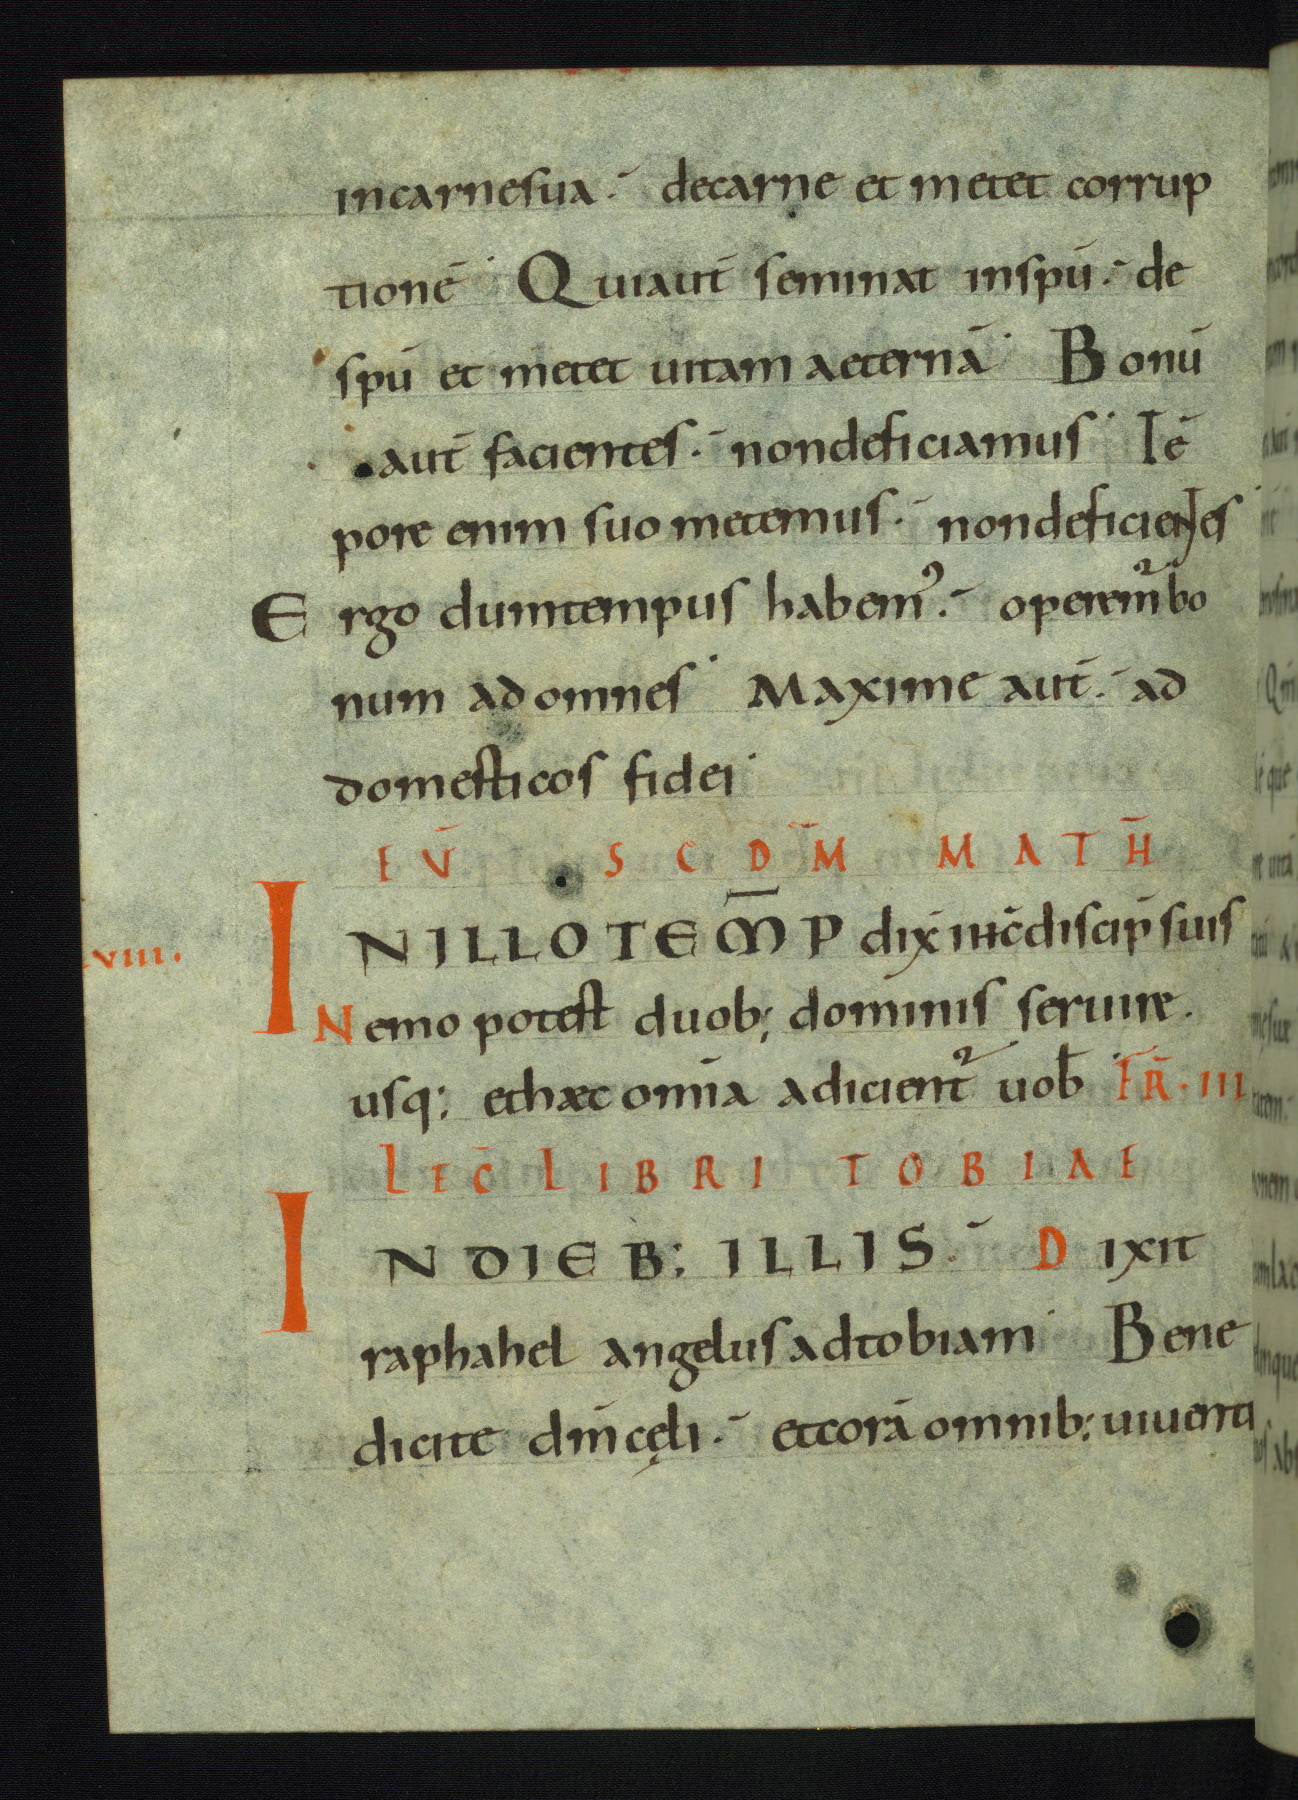 in carne sua. de carne et metet corrup
tionē Qui aut̄ seminat in spū. de
spū et metet uitam aeternā Bonū
aut̄ facientes. non deficiamus Tē
pore enim suo metemus. non deficientes
Ergo dum tempus habem᾽. operem᷑ bo
num ad omnes Maxime aut̄. ad
domesticos fidei
EŪ SCDM̄ MATH̄
IN ILLO TEM̄P dix̄ ih̄c discip̄ suis
VIII.
Nemo potest duob; dominis seruire.
usq; et haec om̄ia adicient᷑ uob̄ FR̄. III
LEC̄ LIBRI TOBIAE
IN DIEB; ILLIS. Dixit
raphahel angelus ad tobiam Bene
dicite dm̄ cęli. et corā omnib; uiuenti